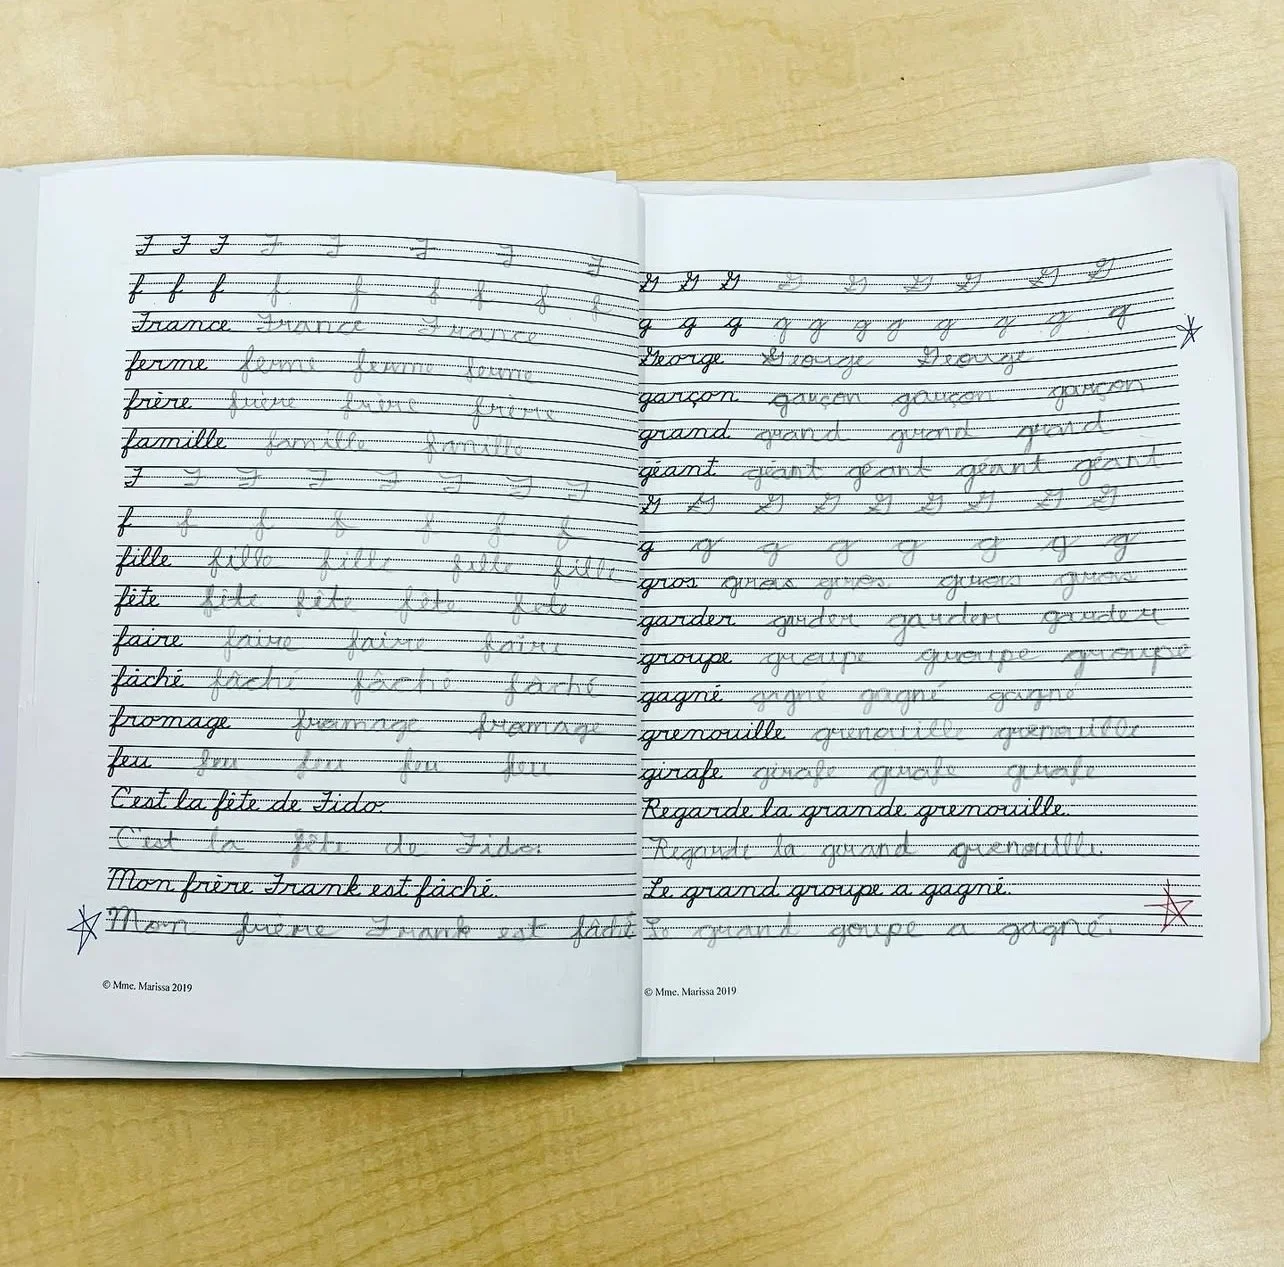 F F F F F F F F
f f f f f f f f f
France France France
ferme ferme ferme ferme
frère frère frère frère
famille famille famille
F F F F F F F F
f f f f f f f
fille fille fille fille fille
fête fête fête fête fete
faire faire faire faire
fâché fâché fâché fâché
fromage fromage fromage
feu feu feu feu feu
C'est la fête de Fido.
C'est la fête de Fido.
Mon frère Frank est fâché.
Mon frère Frank est fâché
© Mme. Marissa 2019
G G G G G G G G G
g g g g g g g g g g g
George George George
garçon garçon garçon garçon
grand grand grand grand
géant géant géant géant géant
G G G G G G G G
g g g g g g g g
gros gros gros gros gros
garder garder garder garder
groupe groupe groupe groupe
gagné gagné gagné gagné
grenouille grenouille grenouille
girafe girafe girafe girafe
Regarde la grande grenouille.
Regarde la grand grenouille.
Le grand groupe a gagné.
Le grand goupe a gagné.
© Mme. Marissa 2019